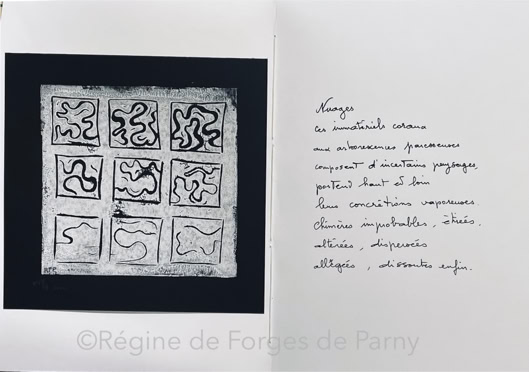 Nuages
ces immatériels coraux
aux arborescences paresseuses
composent d'incertains paysages,
portent haut et loin
leurs concrétions vaporeuses.
chimères improbables, étirées.
altérées, dispersées
allégées, dissoutes enfin.
©Régine de Forges de Parny